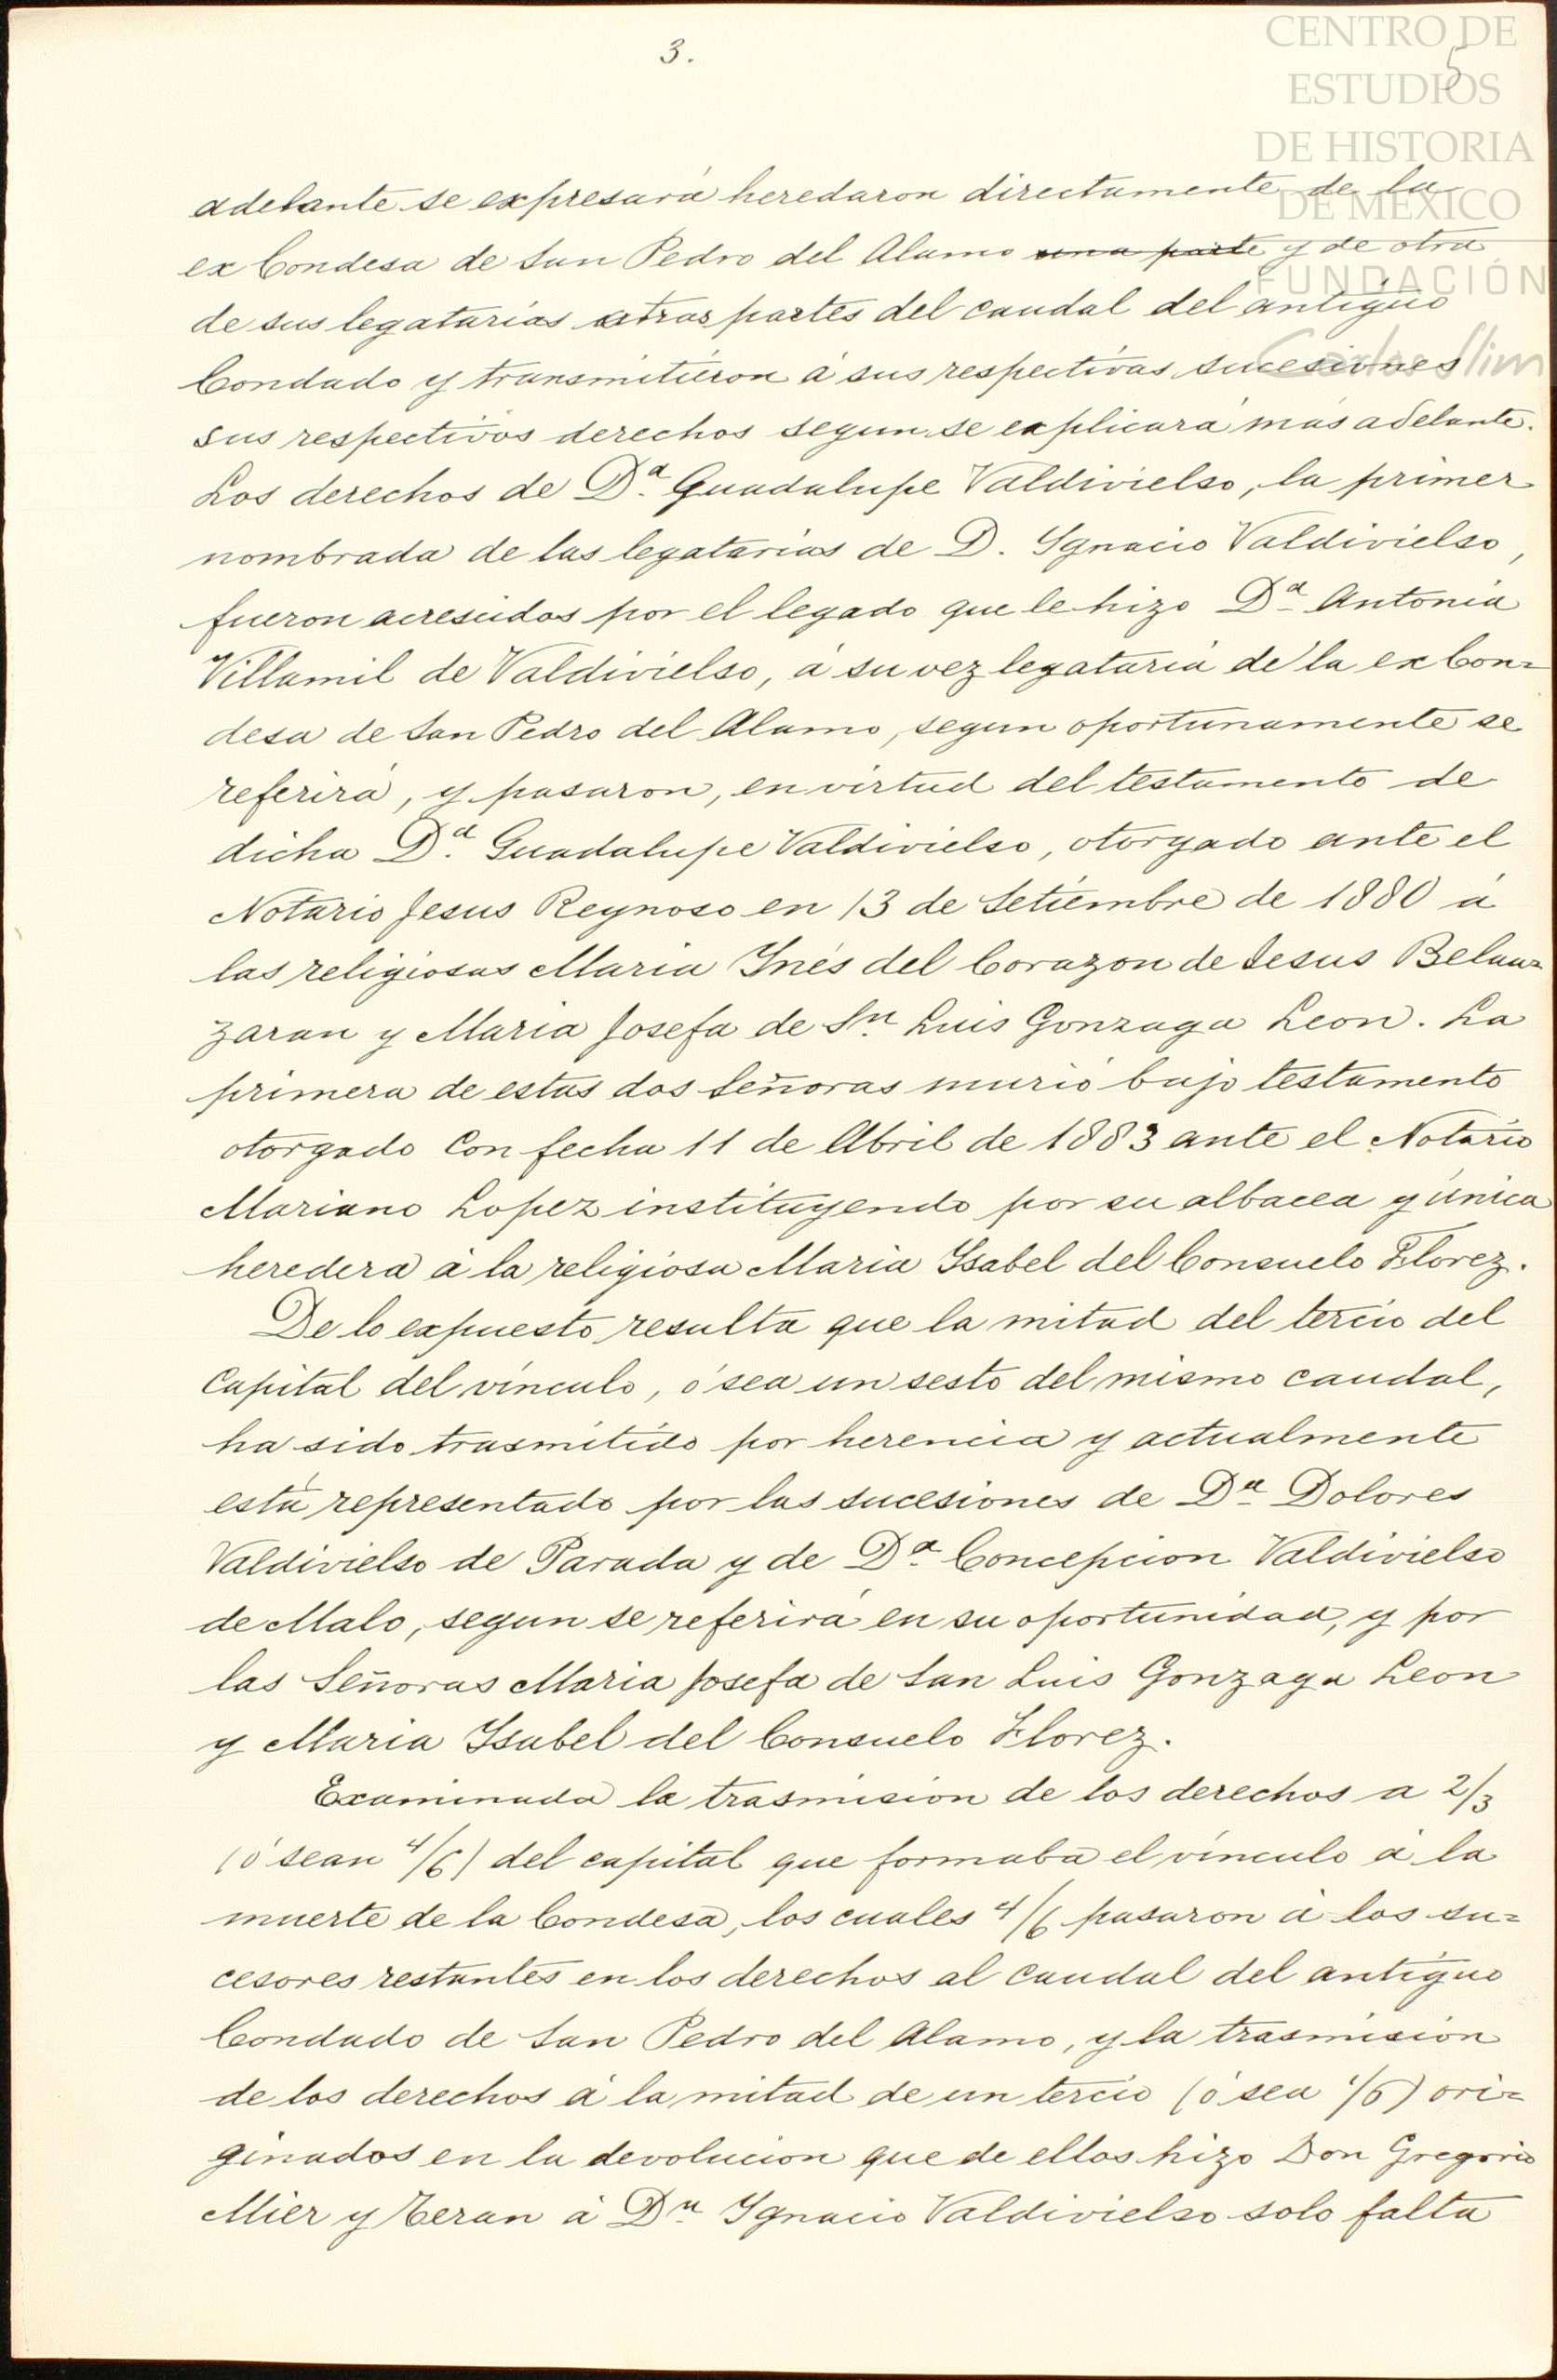 3.
5
CENTRO DE
ESTUDIOS
DE HISTORIA
DE MÉXICO
FUNDACIÓN
Carlos Slim
adelante se expresará heredaron directamente de la
ex Condesa de San Pedro del Alamo una parte y de otra
de sus legatarias otras partes del caudal del antiguo
Condado y transmitieron á sus respectivas sucesiones
sus respectivos derechos segun se explicará mas adelante.
Los derechos de Dª Guadalupe Valdivielso, la primer
nombrada de las legatarias de D. Ygnacio Valdivielso,
fueron acrescidos por el legado que le hizo Dª Antonia
Villamil de Valdivielso, á su vez legataria de la ex Con=
desa de San Pedro del Alamo, segun oportunamente se
referirá, y pasaron, en virtud del testamento de
dicha Dª Guadalupe Valdivielso, otorgado ante el
Notario Jesus Reynoso en 13 de Setiembre de 1880 á
las religiosas Maria Ynés del Corazon de Jesus Belaun=
zaran y Maria Josefa de Sn. Luis Gonzaga Leon. La
primera de estas dos Señoras murió bajo testamento
otorgado con fecha 11 de Abril de 1883 ante el Notario
Mariano Lopez instituyendo por su albacea y única
heredera á la religiosa Maria Ysabel del Consuelo Florez.
De lo expuesto resulta que la mitad del tercio del
Capital del vínculo, ó sea un sesto del mismo caudal,
ha sido trasmitido por herencia y actualmente
está representado por las sucesiones de Dª Dolores
Valdivielso de Parada y de Dª Concepcion Valdivielso
de Malo, segun se referirá en su oportunidad, y por
las Señoras Maria Josefa de San Luis Gonzaga Leon
y Maria Ysabel del Consuelo Florez.
Examinada la trasmision de los derechos a 2/3
(ó sean 4/6) del capital que formaba el vínculo á la
muerte de la Condesa, los cuales 4/6 pasaron á los su=
cesores restantes en los derechos al caudal del antiguo
Condado de San Pedro del Alamo, y la trasmision
de los derechos á la mitad de un tercio (ó sea 1/6) ori=
ginados en la devolucion que de ellos hizo Don Gregorio
Mier y Teran á Dn Ygnacio Valdivielso solo falta